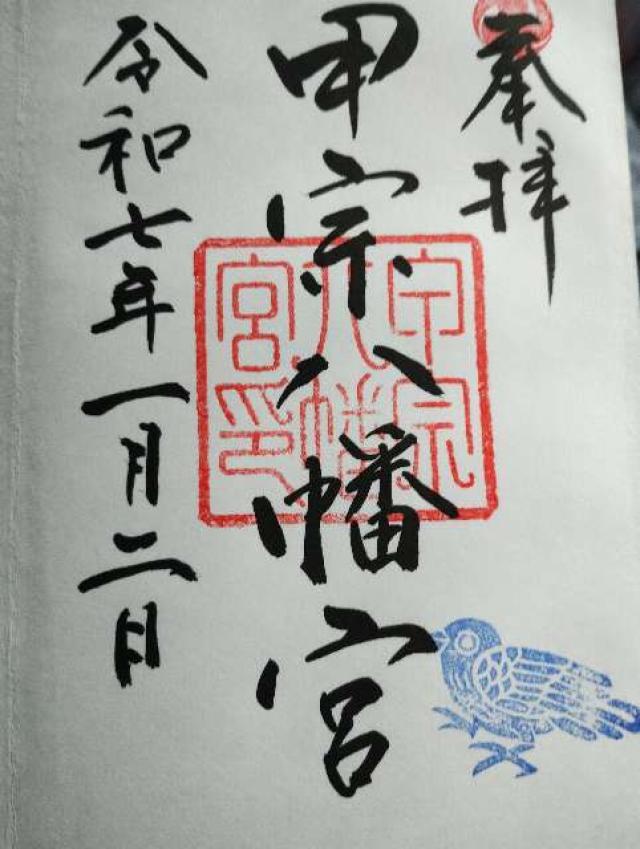 奉拝
甲宗八幡宮
甲宗八幡宮印
令和七年一月二日